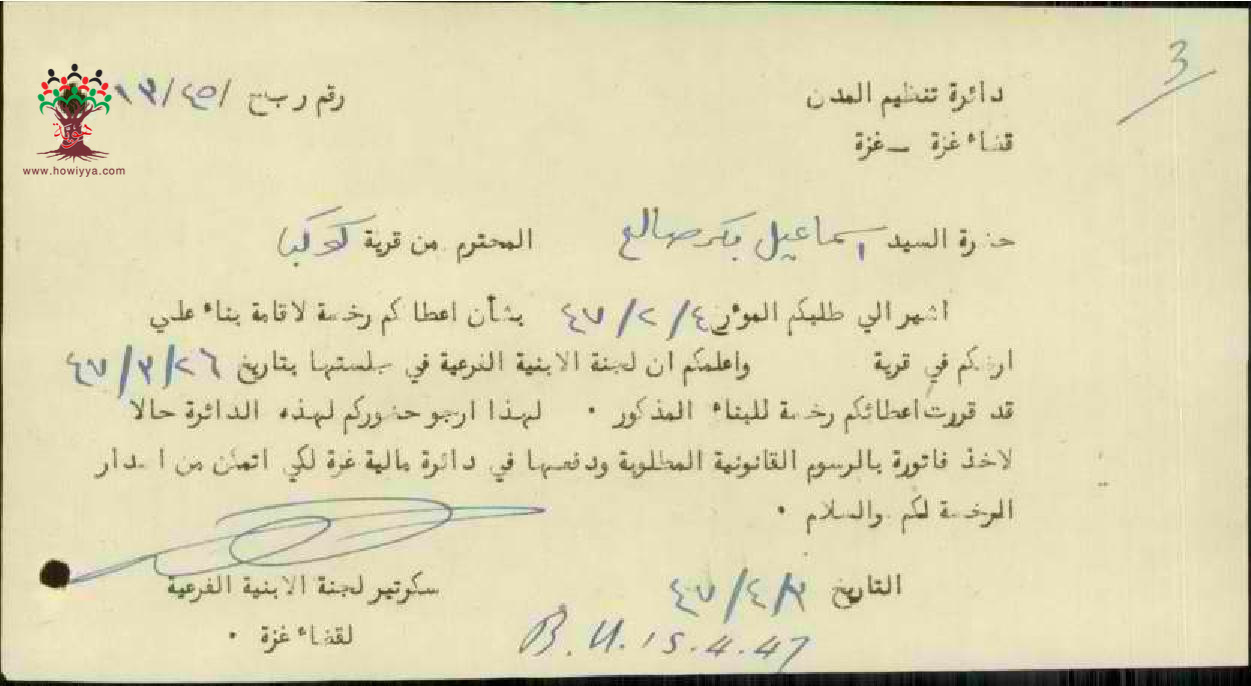 3
دائرة تنظيم المدن
رقم ر ب ج /١٣/٤٥
قضاء غزة — غزة
هوية
www.howiyya.com
حضرة السيد اسماعيل بكر صالح المحترم من قرية كوكبا
اشير الي طلبكم المؤرخ ٤/٢/٤٧ بشأن اعطاكم رخصة لاقامة بناء علي
ارضكم في قرية واعلمكم ان لجنة الابنية الفرعية في جلستها بتاريخ ٢٦/٣/٤٧
قد قررت اعطائكم رخصة للبناء المذكور . لهذا ارجو حضوركم لهذه الدائرة حالا
لاخذ فاتورة بالرسوم القانونية المطلوبة ودفعها في دائرة مالية غزة لكي اتمكن من اصدار
الرخصة لكم والسلام .
التاريخ ٣/٤/٤٧
سكرتير لجنة الابنية الفرعية
لقضاء غزة .
B. U. 15.4.47